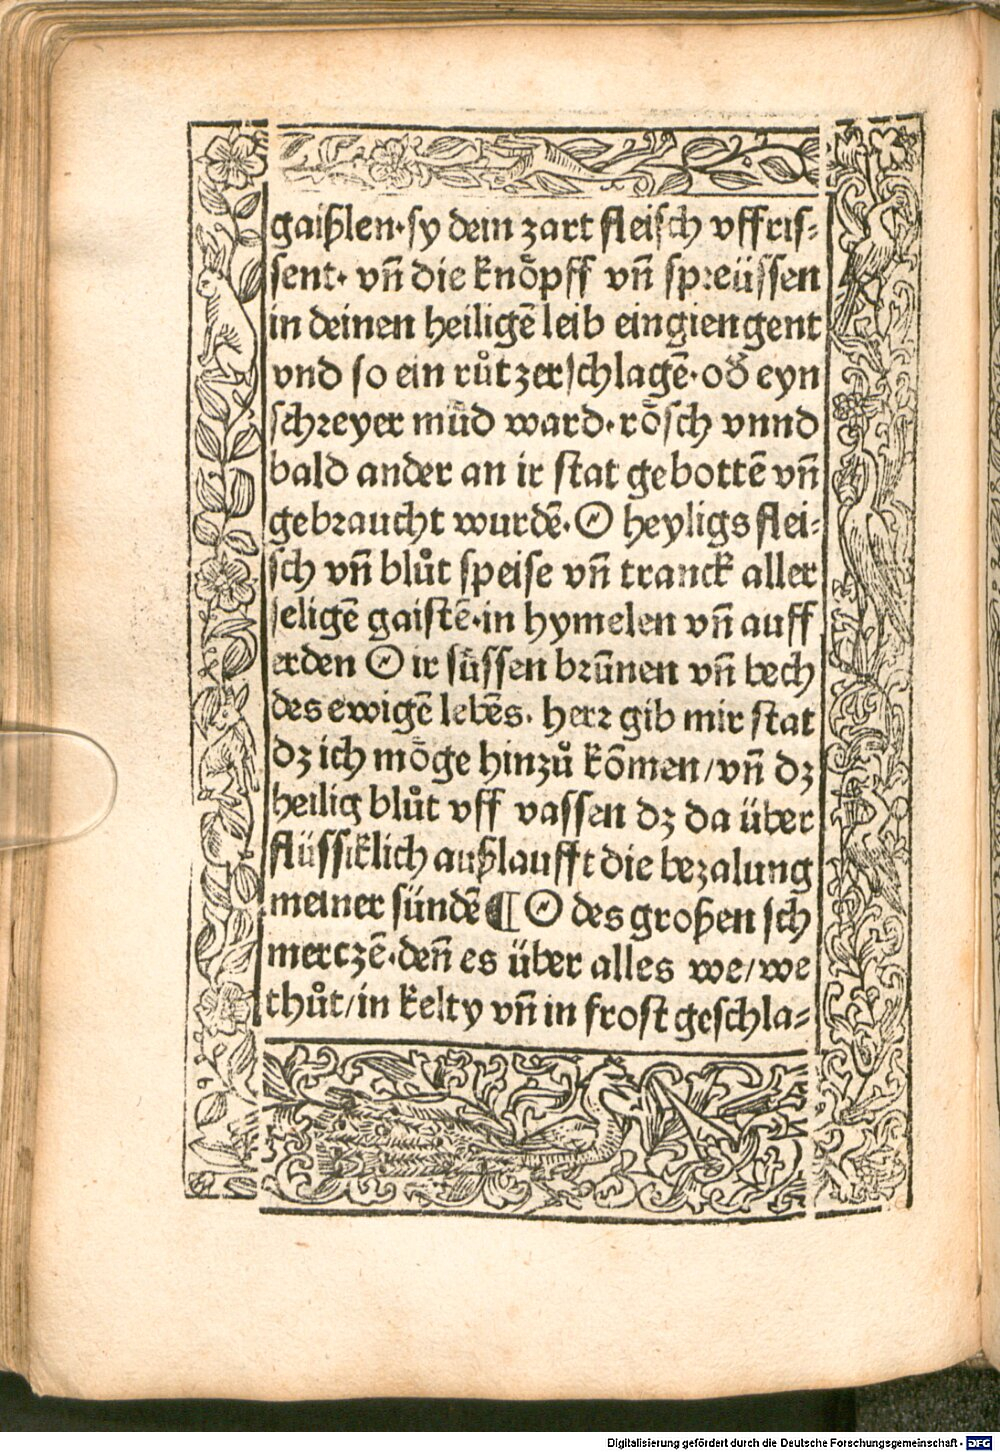 gaißlen·sy dein zart fleisch vffris⸗
sent· vn̄ die knoͤpff vn̄ spreüssen
in deinen heiligē leib eingiengent
vnd so ein ruͦt zerschlagē·od̕ eyn
schreyer muͤd ward·roͤsch vnnd
bald ander an ir stat gebottē vn̄
gebraucht wurdē·O heyligs flei⸗
sch vn̄ bluͦt speise vn̄ tranck aller
seligē gaistē·in hymelen vn̄ auff
erden O ir suͤssen brūnen vn̄ bech
des ewigē lebēs· herr gib mir stat
dz ich moͤge hinzuͦ kōmen/vn̄ dz
heilig bluͦt vff vassen dz da über
flüssiklich außlaufft die bezalung
meiner sündē ¶ O des großen sch
merczē·deñ es über alles we/we
thuͦt/in kelty vn̄ in frost geschla⸗
Digitalisierung gefördert durch die Deutsche Forschungsgemeinschaft - DFG